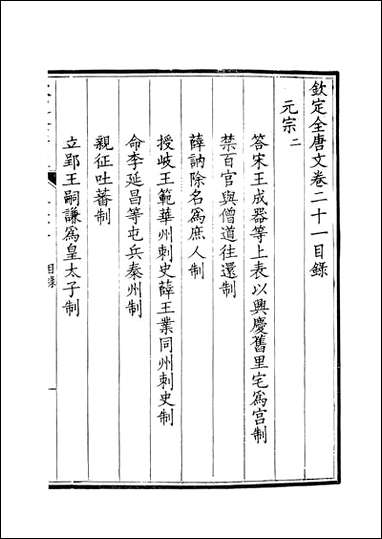 欽定全唐文卷二十一目錄
元宗二
答宋王成器等上表以興慶舊里宅爲宮制
禁百官與僧道往還制
薛訥除名爲庶人制
授岐王範華州刺史薛王業同州刺史制
命李延昌等屯兵秦州制
親征吐蕃制
立郢王嗣謙爲皇太子制
目錄